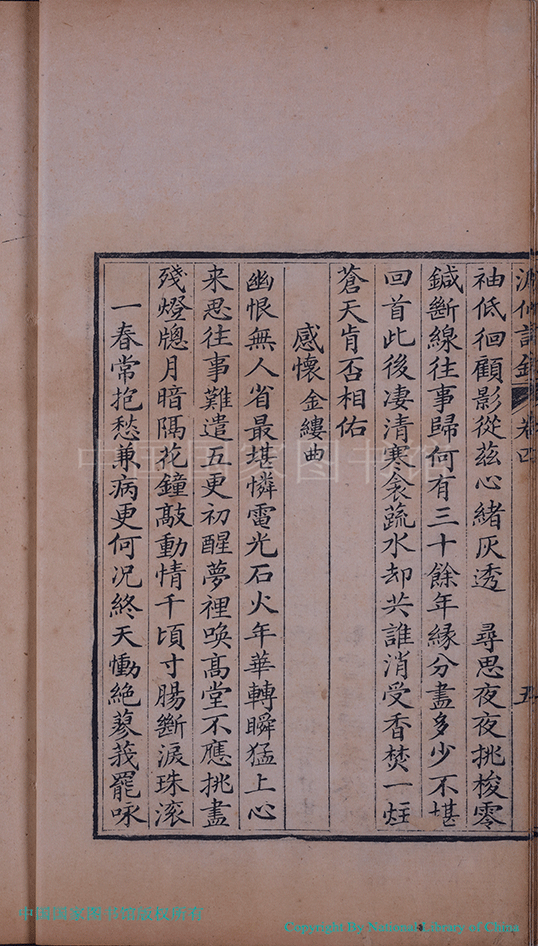 卷四
五
袖低徊顧影從茲心緒灰透 尋思夜夜挑梭零
鍼斷線往事歸何有三十餘年緣分盡多少不堪
回首此後凄清寒衾蔬水却共誰消受香焚一炷
蒼天肯否相佑
感懷 金縷曲
幽恨無人省最堪憐電光石火年華轉瞬猛上心
来思往事難遣五更初醒夢裡喚髙堂不應挑盡
殘燈牕月暗隔花鐘敲動情千頃寸腸斷淚珠滚
一春常抱愁兼病更何況終天慟絶蓼莪罷咏
中國國家图书馆
中國國家图书馆版权所有
Copyright By National Library of China